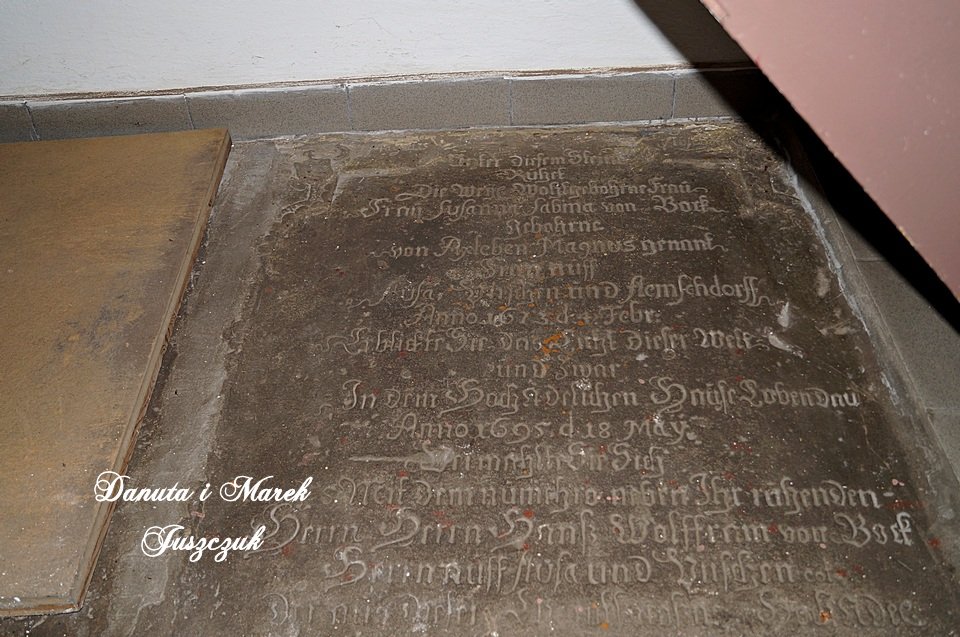 Unter diesem Stein
Ruhet
Die Weyl Wohlgebohrne Frau
Frau Susanna Sabina von Bock
Gebohrne
von Axleben Magnus genant
Frau auff
und
Anno 1673 d. Febr:
Erblickte Sie das Licht dieser Welt
und zwar
In dem Hoch Adelichen Hause Lobendau
Anno 1695 d. 18 May.
Vermehlte Sie Sich
Mit dem nunmehro neben Ihr ruhenden
Herrn Herrn Hans Wolffram von Bock
Herrn auff und
Hoch Adel
Danuta i Marek
Juszczuk